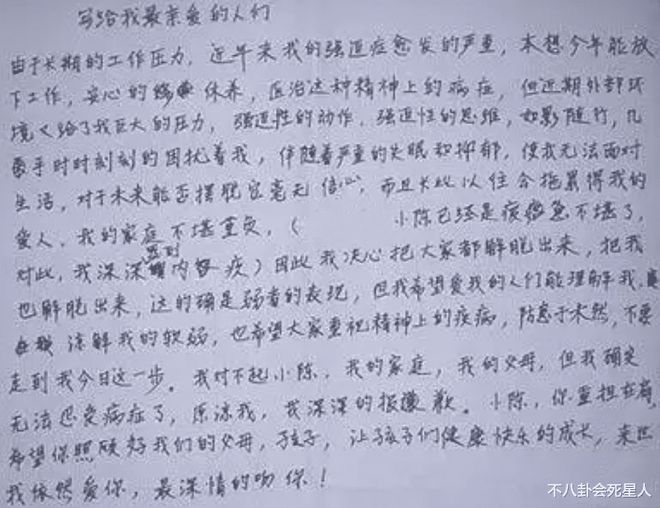 写给我最亲爱的人们
由于长期的工作压力，近年来我的强迫症愈发的严重，本想今年能放
下工作，安心的休养，医治这种精神上的病症，但近期外部环
境又给了我巨大的压力，强迫性的动作，强迫性的思维，如影随行，几
乎时时刻刻的困扰着我，伴随着严重的失眠和抑郁，使我无法面对
生活，对于未来能否摆脱它毫无信心，而且长此以往会拖累得我的
爱人、我的家庭不堪重负，（ 小陈已经是疲惫不堪了，
对此，我深深感到内疚）因此我决心把大家都解脱出来，把我
也解脱出来，这的确是弱者的表现，但我希望爱我的人们能理解我，
谅解我的软弱，也希望大家重视精神上的疾病，防患于未然，不要
走到我今日这一步。我对不起小陈、我的家庭，我的父母，但我确实
无法忍受病症了，原谅我，我深深的抱歉。小陈，你重担在肩，
希望你照顾好我们的父母，孩子，让孩子们健康快乐的成长，来世
我依然爱你，最深情的吻你！
不八卦会死星人